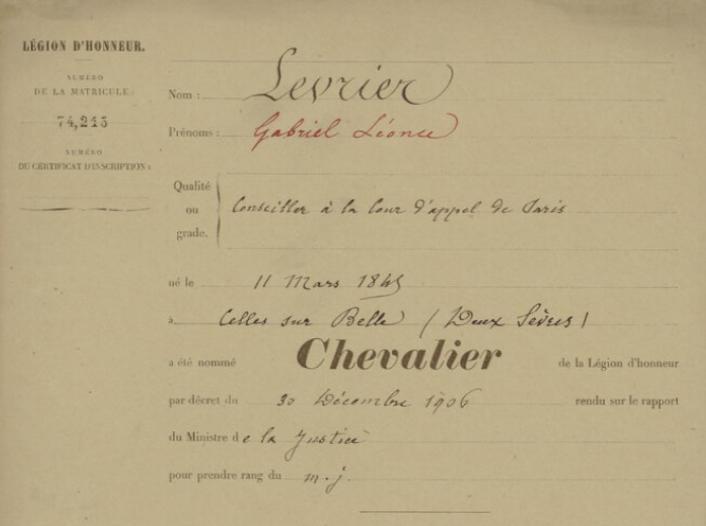 LÉGION D'HONNEUR.
NUMÉRO
DE LA MATRICULE:
74,243
NUMÉRO
DU CERTIFICAT D'INSCRIPTION:
Nom: Levrier
Prénoms: Gabriel Léonce
Qualité
ou
grade.
Conseiller à la Cour d'appel de Paris
né le 11 Mars 1845
à Celles sur Belle (Deux Sèvres)
a été nommé Chevalier de la Légion d'honneur
par décret du 30 Décembre 1906 rendu sur le rapport
du Ministre de la Justice
pour prendre rang du m. j.